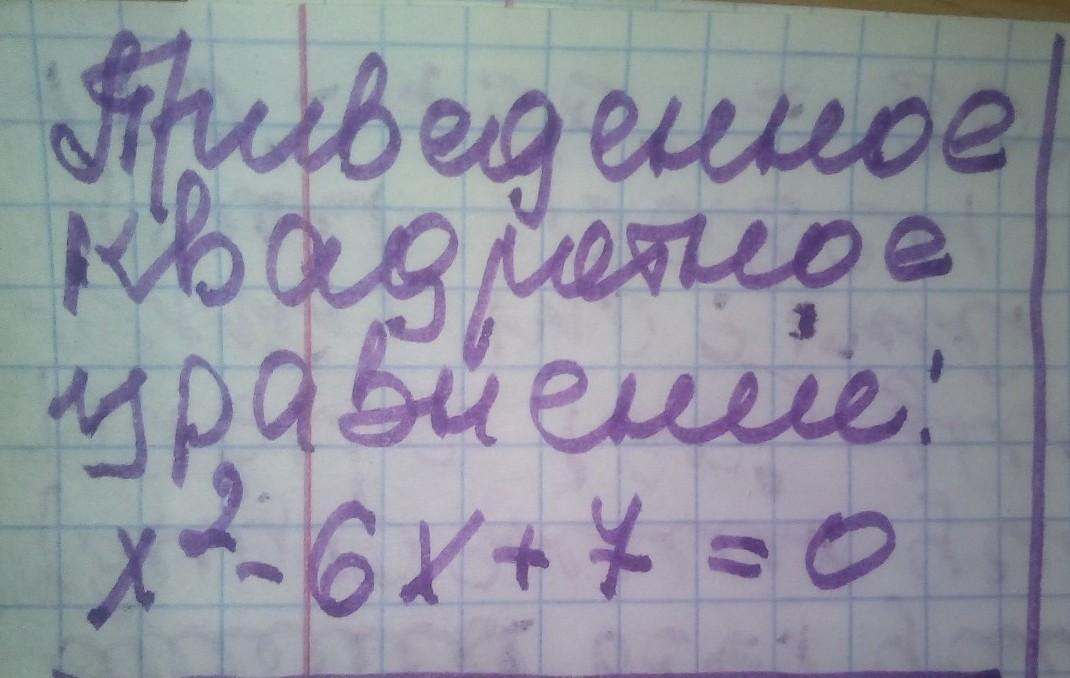 Приведенное
квадратное
уравнение:
x² - 6x + 7 = 0